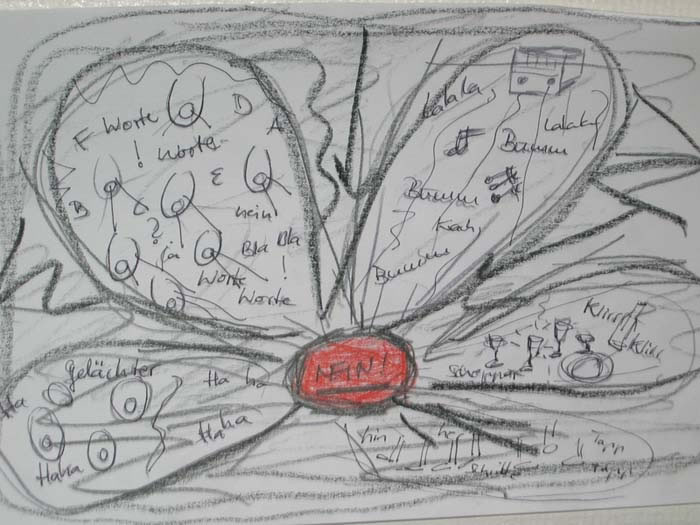 F Worte D
A
! Worte
E
B
C
?
nein
ja
Bla Bla
Worte !
Worte
Lalala,
Lalala,
Bumm
Bumm
Krach,
Bumm
Klirr
Klirr
NEIN!
Gelächter
Ha
Ha ha
Haha
Haha
hin
Tapp
Tapp